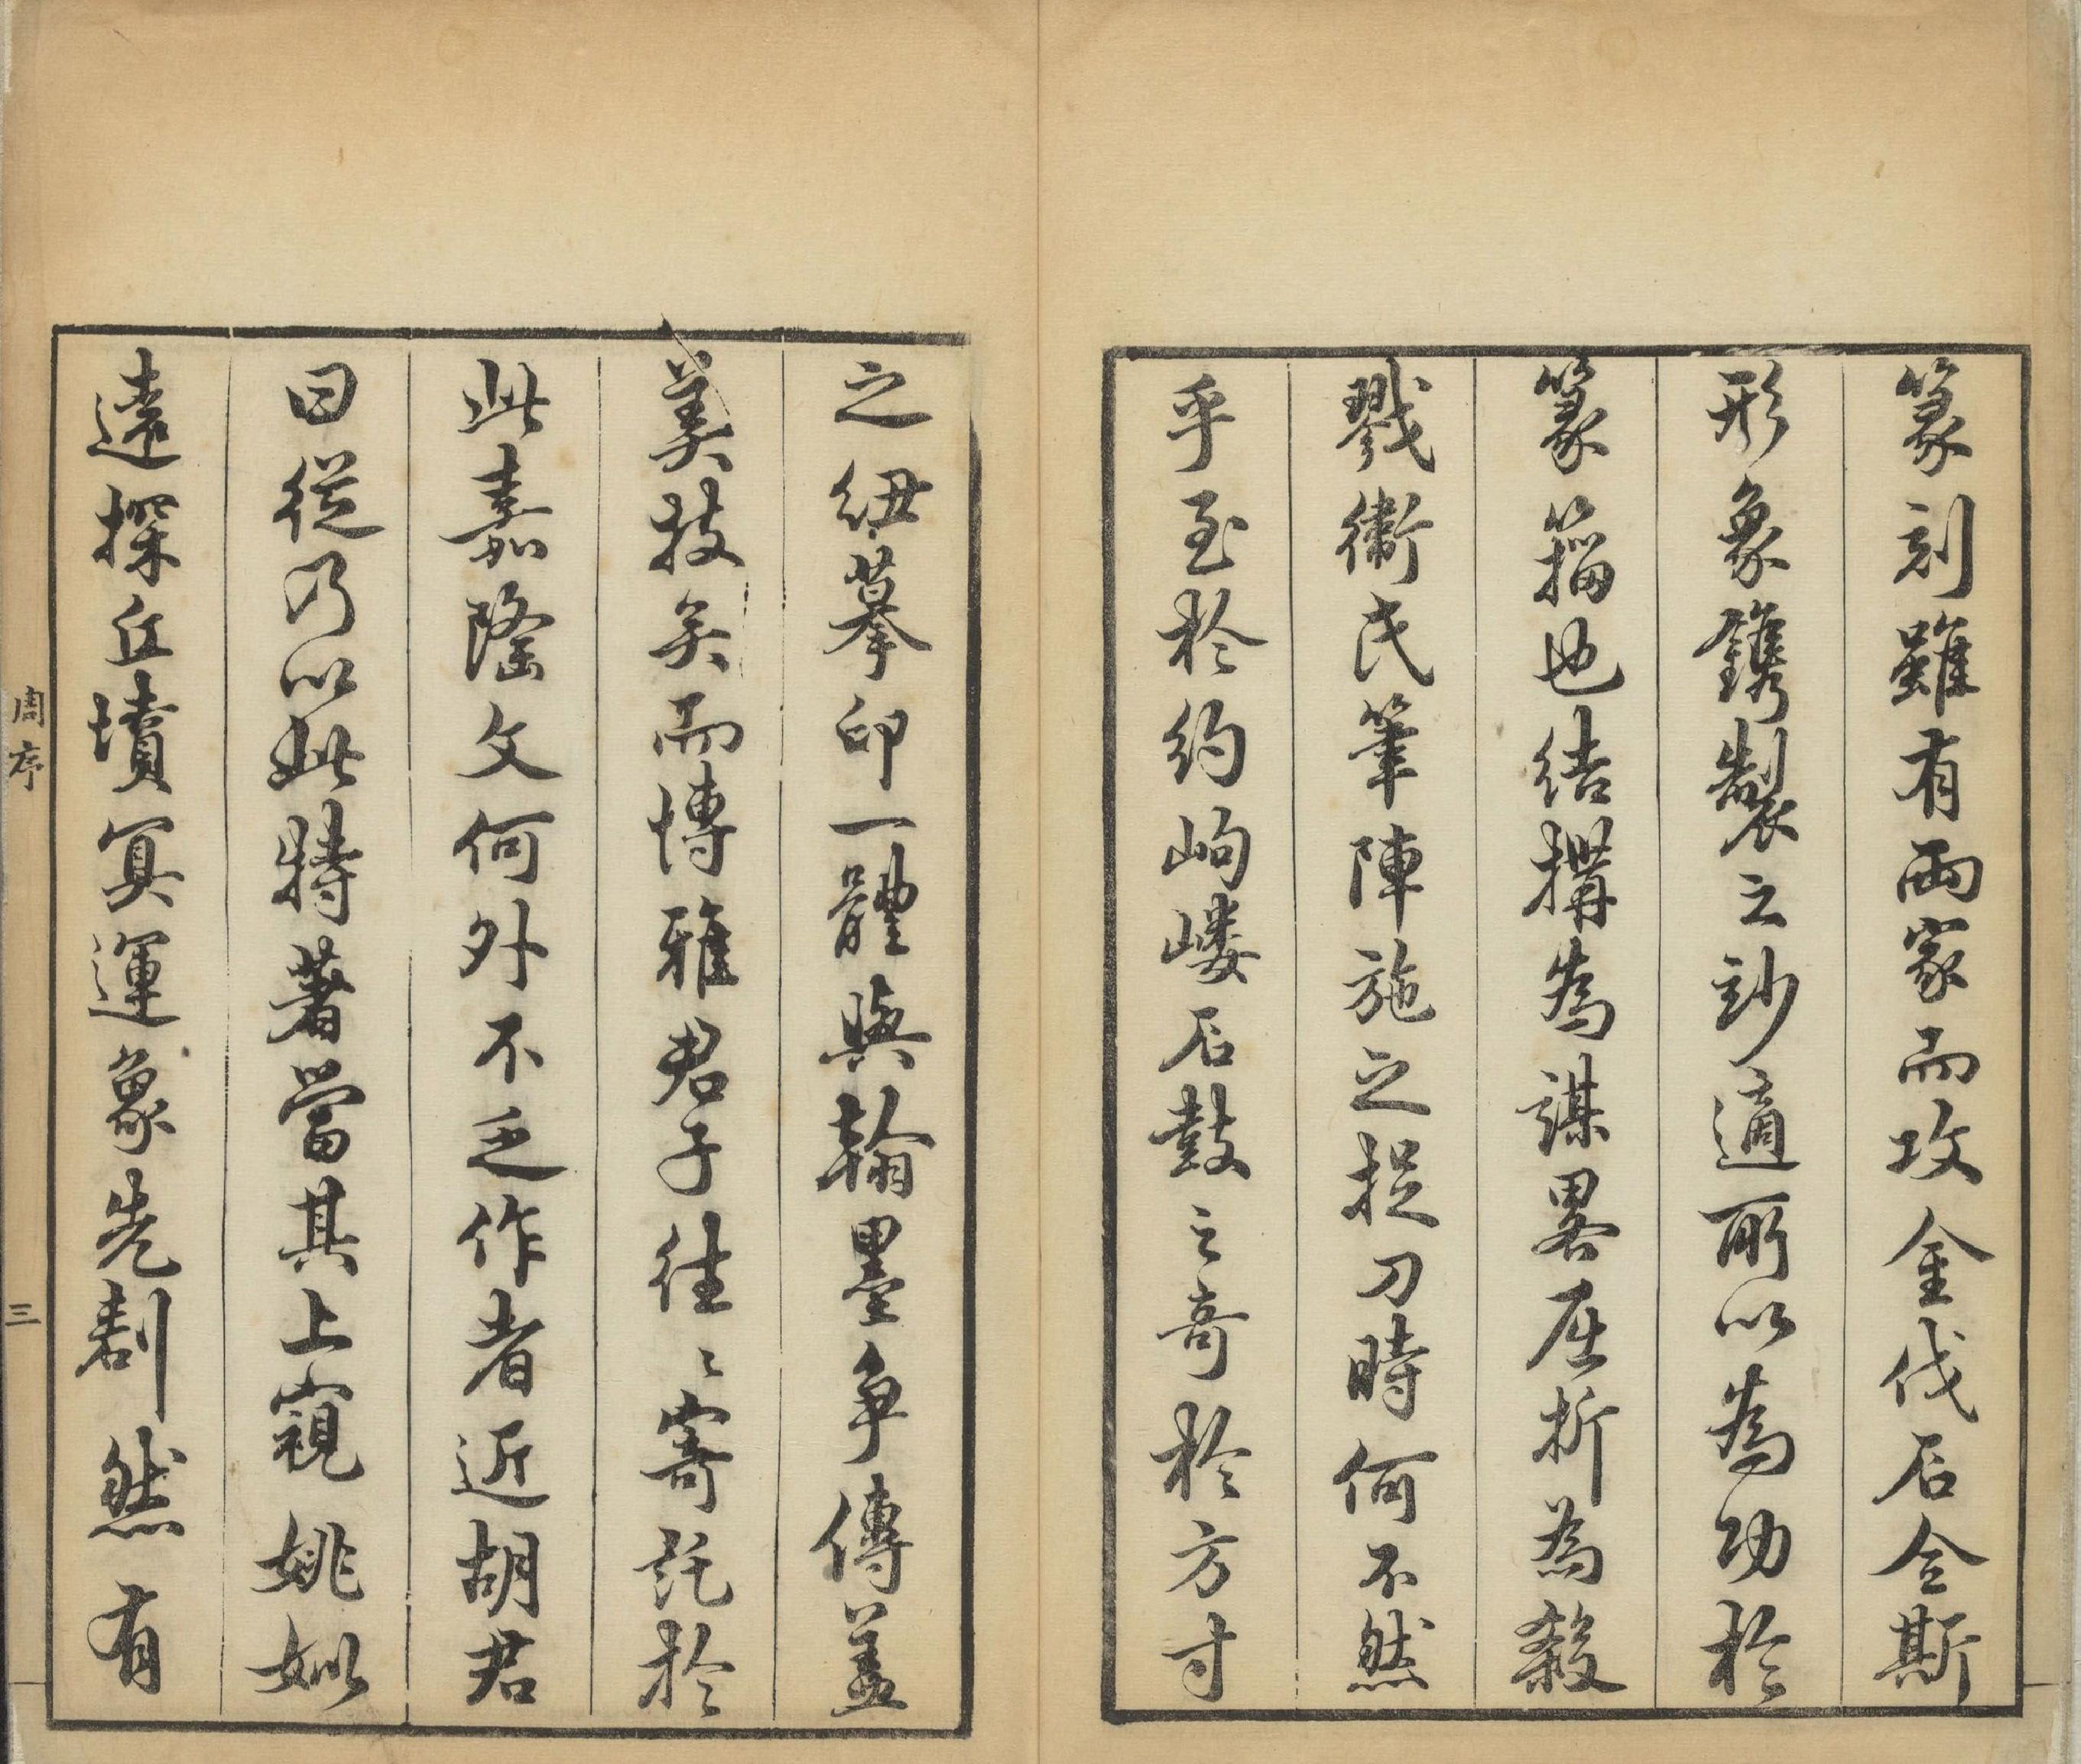 篆刻雖有兩家而攻金伐石合斯
形象鐫製之妙適所以為功於
篆籀也結搆為謀畧屈折為殺
戮衛氏筆陣施之捉刀時何不然
乎至於約岣嶁石鼓之奇於方寸
之紐摹印一體與翰墨爭傳蓋
美技矣而博雅君子往〻寄託於
此嘉隆文何外不乏作者近胡君
曰從乃以此特著當其上窺姚姒
遠探丘墳冥運象先劃然有
周序
三